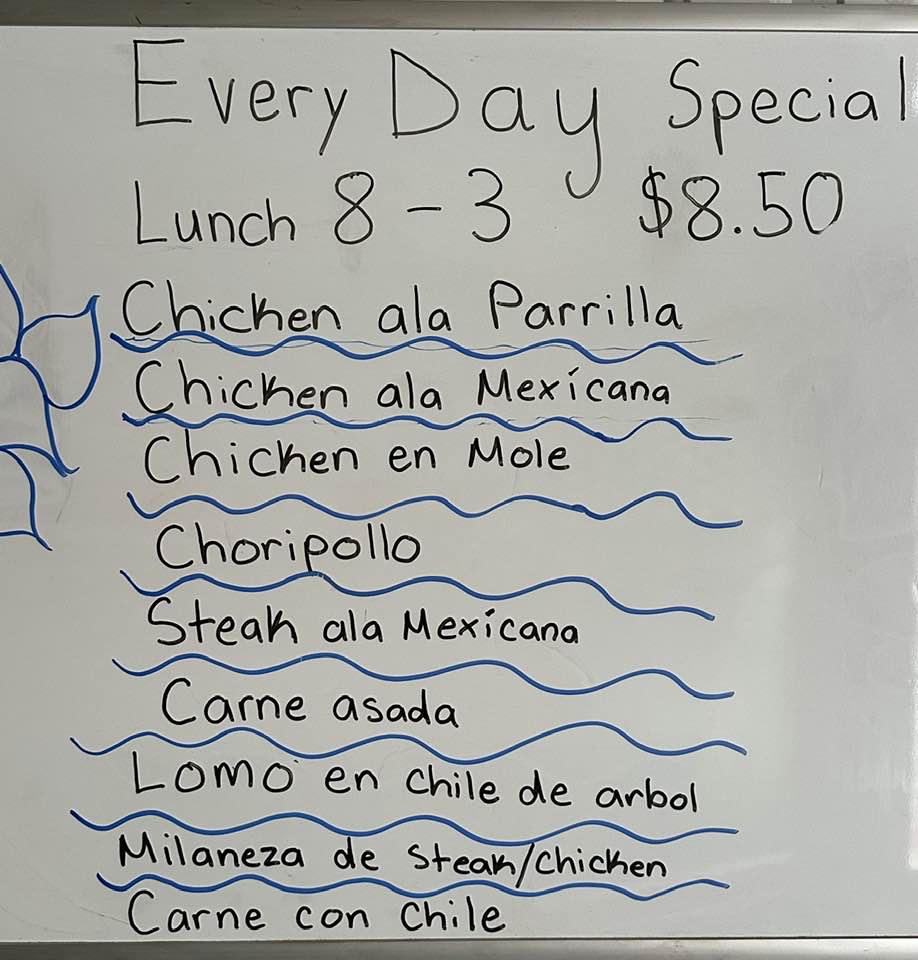 Every Day Special
Lunch 8 - 3 $8.50
Chicken ala Parrilla
Chicken ala Mexícana
Chicken en Mole
Choripollo
Steak ala Mexícana
Carne asada
Lomo en chile de arbol
Milaneza de steak/chicken
Carne con chile